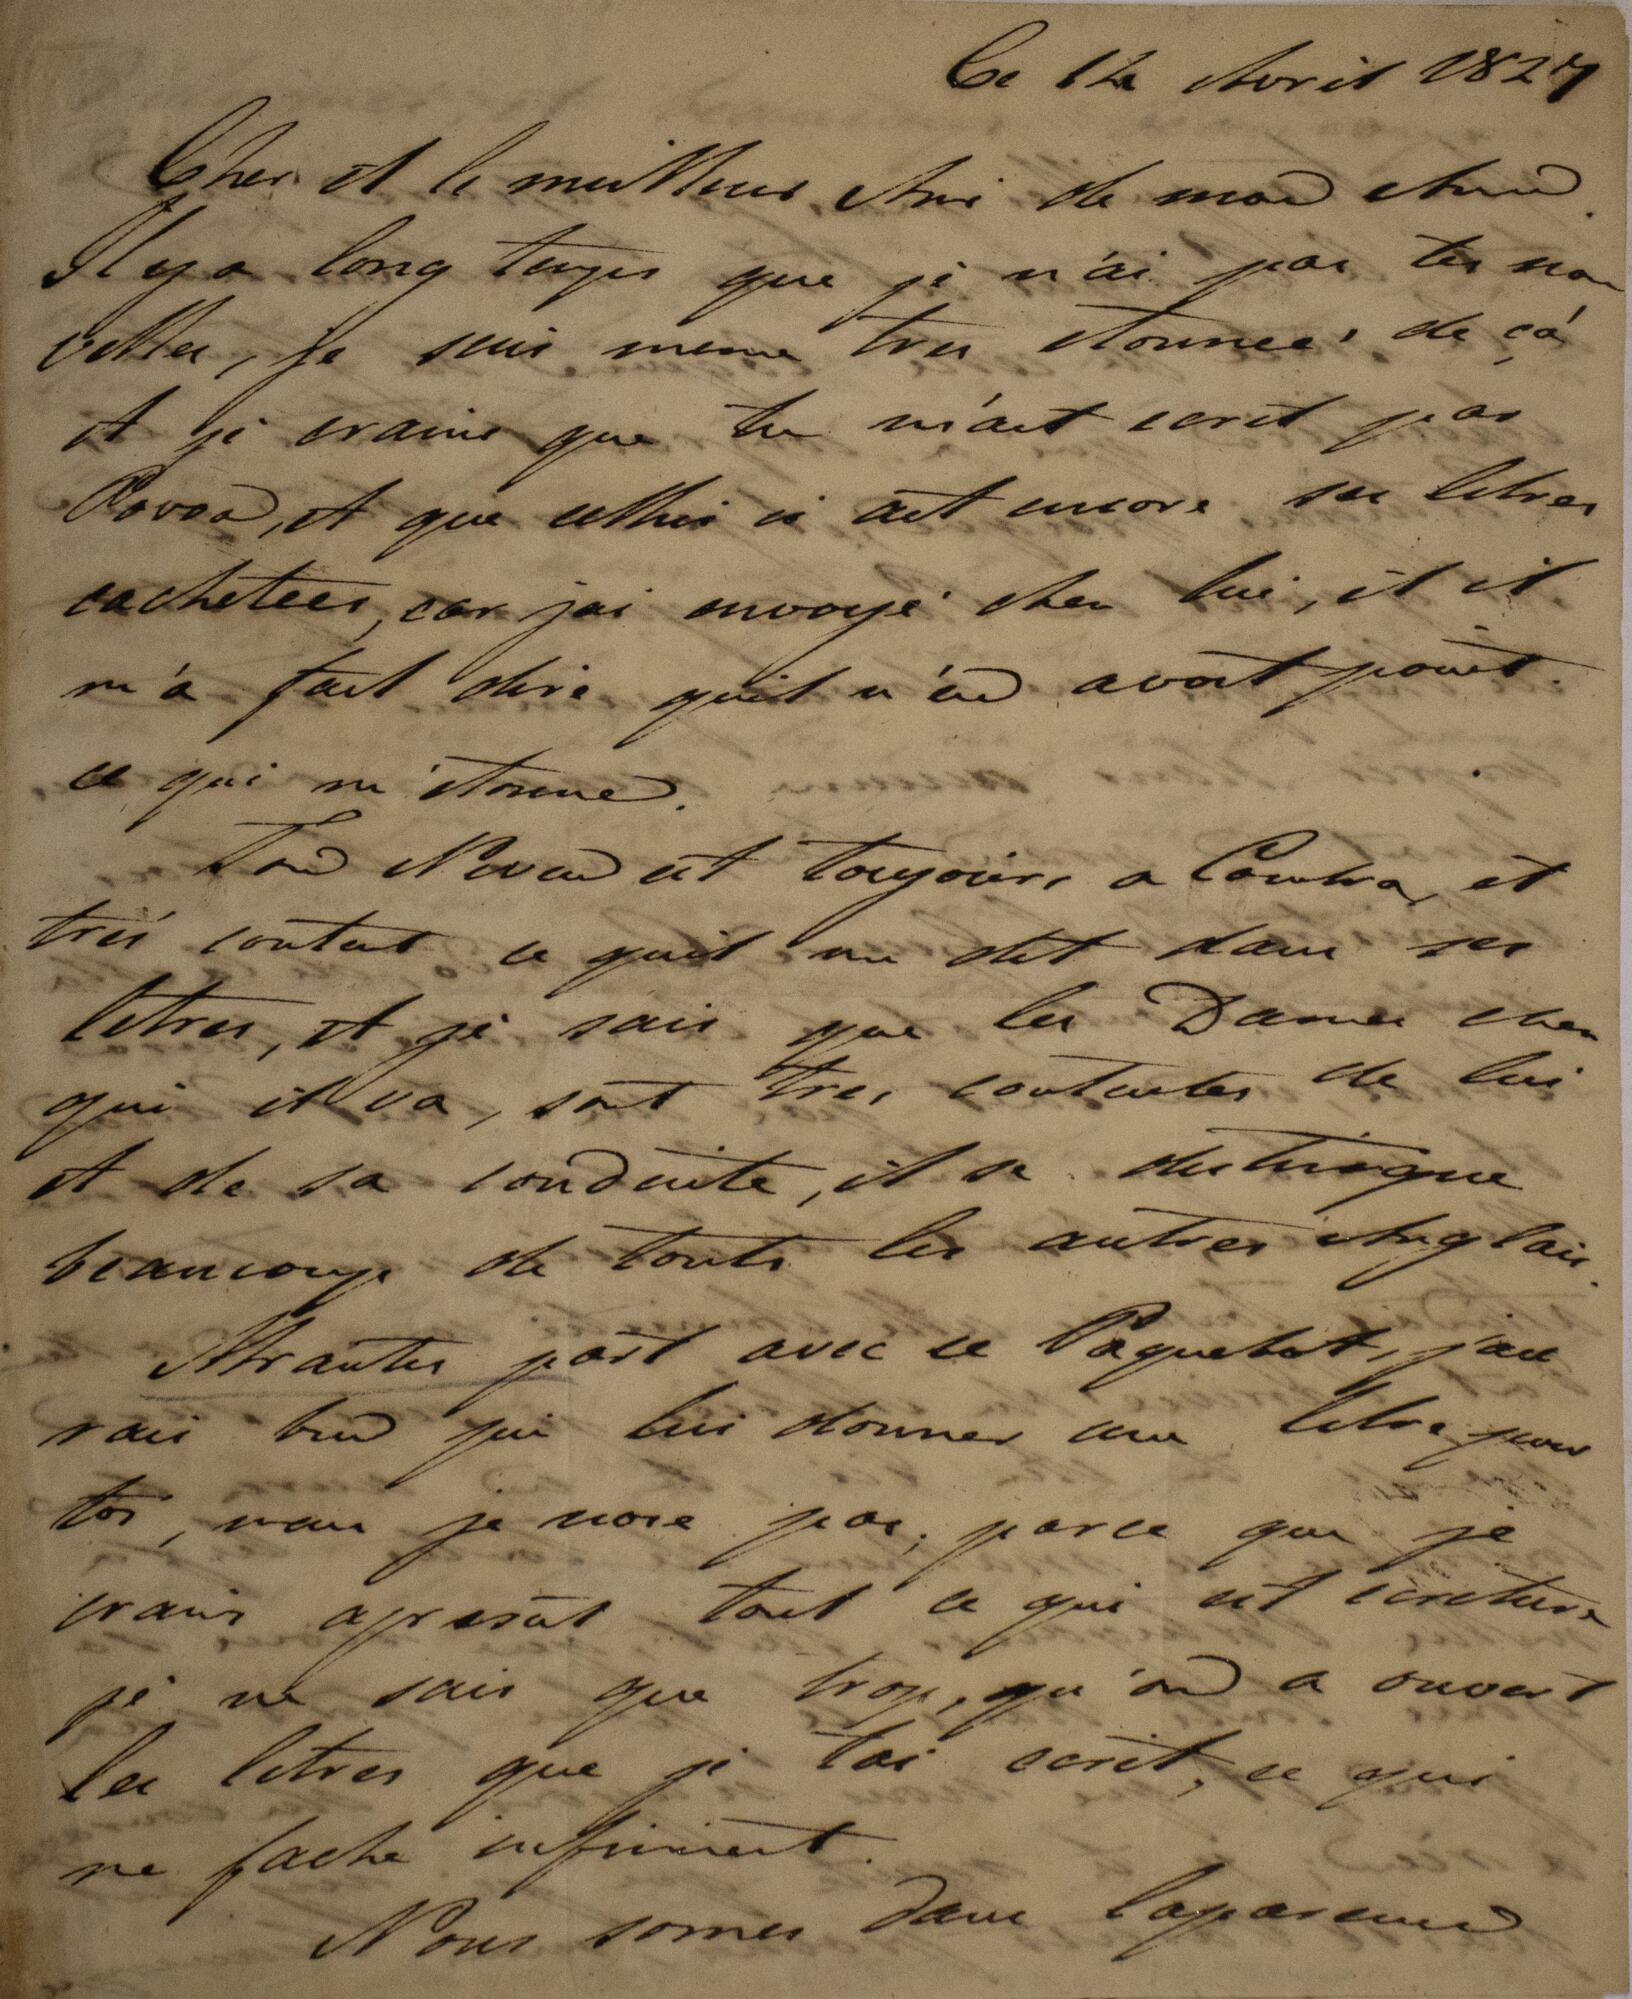 Ce 12 Avril 1827
Cher et le meilleur Ami de mon Ame.
Il y a long temps que je n'ai pas tes nou
velles, je suis meme tres etonneé de çá
et je crains que tu m'aet ecrit par
Povoa, et que celhui ci aet encore ses letres
cachetees, car jai envoyé chez lui, et il
m'a fait dire quil n'en avoit point.
ce qui m'étonne.
Ton Neveu est toujours a Coimbra, et
trés contant ce quil me dit dans ses
letres, et je sais que les Dames chez
qui il va, sont tres contentes de lui
et de sa conduite, il se destingue
beaucoup de touts les autres Anglais.
Abrantes part avec ce Paquebot, j'au
rais bien pu lui donner une letre pour
toi, mais je nose pas, parce que je
crains apresant tout ce qui est ecriture
je ne sais que trop, qu'on a ouvert
les letres que je tai ecrit, ce qui
me fache infiniment.
Nous somes dans laparence